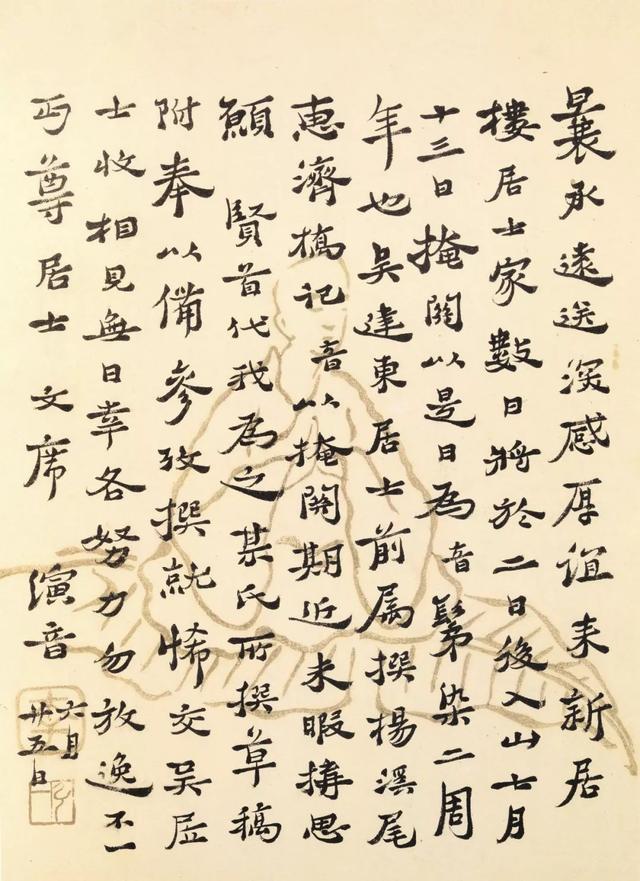 曩承遠送深感厚誼来新居
樓居士家數日将於二日後入山七月
十三日掩關以是日為音剃染二周
年也吴建東居士前属撰楊溪尾
惠濟橋記音以掩關期近未暇搆思
願賢首代我為之某氏所撰草稿
附奉以備參攷撰就希交吴居
士收相見無日幸各努力勿放逸不一
丏尊居士文席演音六月
廿五日